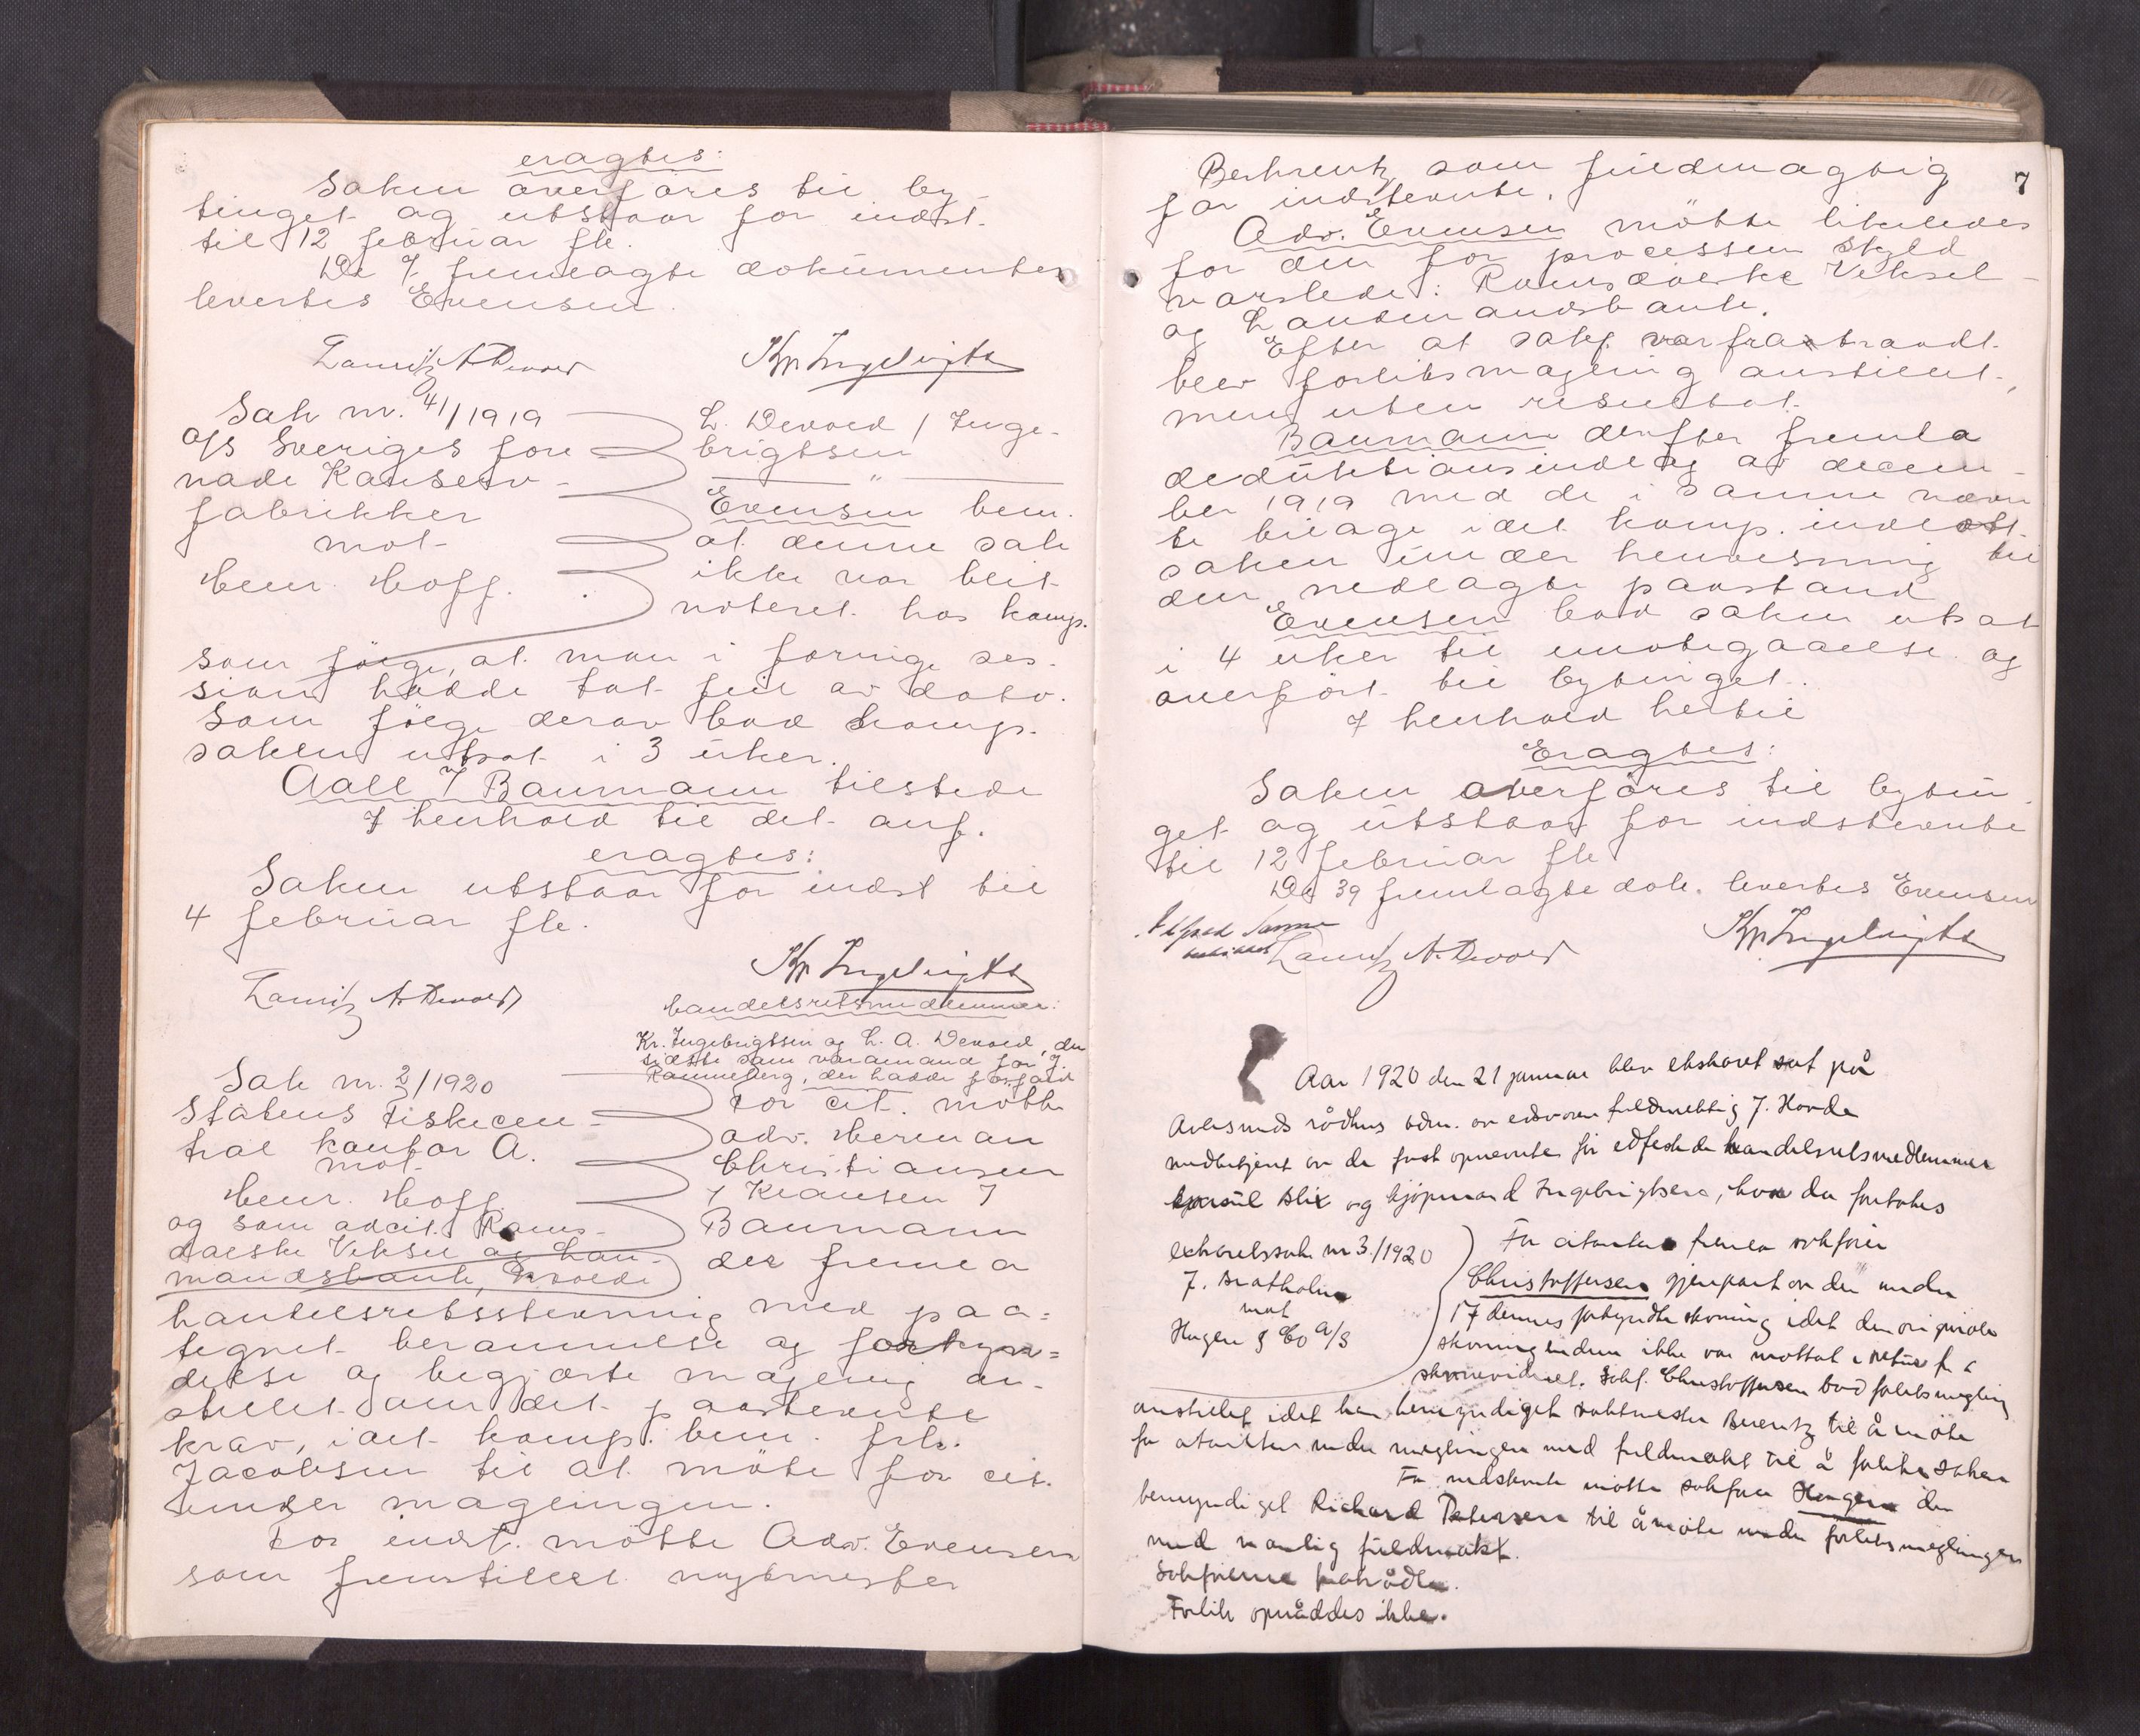 eragtes:
Saken överföres til by-
tinget og utstaar for indst.
til 12 februar fle.
De 7 fremlagte dokumenter
levertes Evensen.
Lauritz A. Devold Kr. Ingebrigtsen
Sak nr. 41/1919
A/S Sveriges före
nade Konserv-
fabrikker
mot
Henr. Hoff.
L. Devold / Inge-
brigtsen
"
Evensen bem.
at denne sak
ikke var blit
noteret hos komp.
som følge, at man i forrige ses-
sion hadde tat feil av dato.
Som følge derav bad komp.
saken utsat i 3 uker.
Aall / Baumann tilstede
I henhold til det anf.
eragtes:
Saken utstaar for indst til
4 februar fle.
Kr. Ingebrigtsen
Lauritz A. Devold
handelsretsmedlemmer:
Kr. Ingebrigtsen og L. A. Devold, den
sidste som varamand for J.
Rønneberg, der hadde forfald
Sak nr. 2/1920
Statens Fiskecen-
tral kontor A.
mot
Henr. Hoff
og som adcit. Roms-
dalske Veksel og Lan-
mandsbank, Molde
For cit. møtte
adv. Herman
Christiansen
/ Klausen /
Baumann
der fremla
handelsretsstevning med paa-
tegnet berammelse og forkyn-
delse og begjærte mægling an-
stillet om det paastevnte
krav, idet komp. bem. frk.
Jacobsen til at møte for cit.
under mæglingen.
For indst. møtte Adv. Evensen
som fremstillet
7
Behrentz som fuldmægtig
for indstevnte.
Adv. Evensen møtte likeledes
for den for processen skyld
varslede: Romsdalske Veksel-
og Landmandsbank.
Efter at sakf. var fratraadt
blev forliksmægling anstillet,
men uten resultat.
Baumann derefter fremla
deduktionsindlæg av decem-
ber 1919 med de i samme nævn
te bilage idet komp. indlot
saken under henvisning til
den nedlagte paastand
Evensen bad saken utsat
i 4 uker til imøtegaaelse og
overført til bytinget.
I henhold hertil
Eragtes:
Saken overføres til bytin-
get og utstaar for indstevnte
til 12 februar fle
De 39 fremlagte dok. levertes Evensen
Kr. Ingebrigtsen
Lauritz A. Devold
Aar 1920 den 21 januar blev ekstraret sat på
Aalesunds rådhus adm. av edsvoren fuldmektig J. Hovde
medbetjent av de fast opnevnte før edfestede handelsretsmedlemmer
konsul Blix og kjøpmand Ingebrigtsen, hvor da foretokes
ekstraretssak nr 3/1920
J. Bratholm
mot
Hagen & Co A/S
For citanten fremla sakfører
Christoffersen gjenpart av den under
17 dennes forkyndte stevning idet den originale
stevning endnu ikke var mottat i retur fra
stevnevidnet. Sakf. Christoffersen bad forliksmegling
anstillet idet han bemyndiget Behrentz til å møte
for citanten under meglingen med fuldmakt til å forlike saken
For indstevnte møtte sakfører Hagen der
bemyndiget Richard Petersen til å møte under forliksmeglingen
med vanlig fuldmakt.
Sakførerne fratrådte.
Forlik opnåddes ikke.